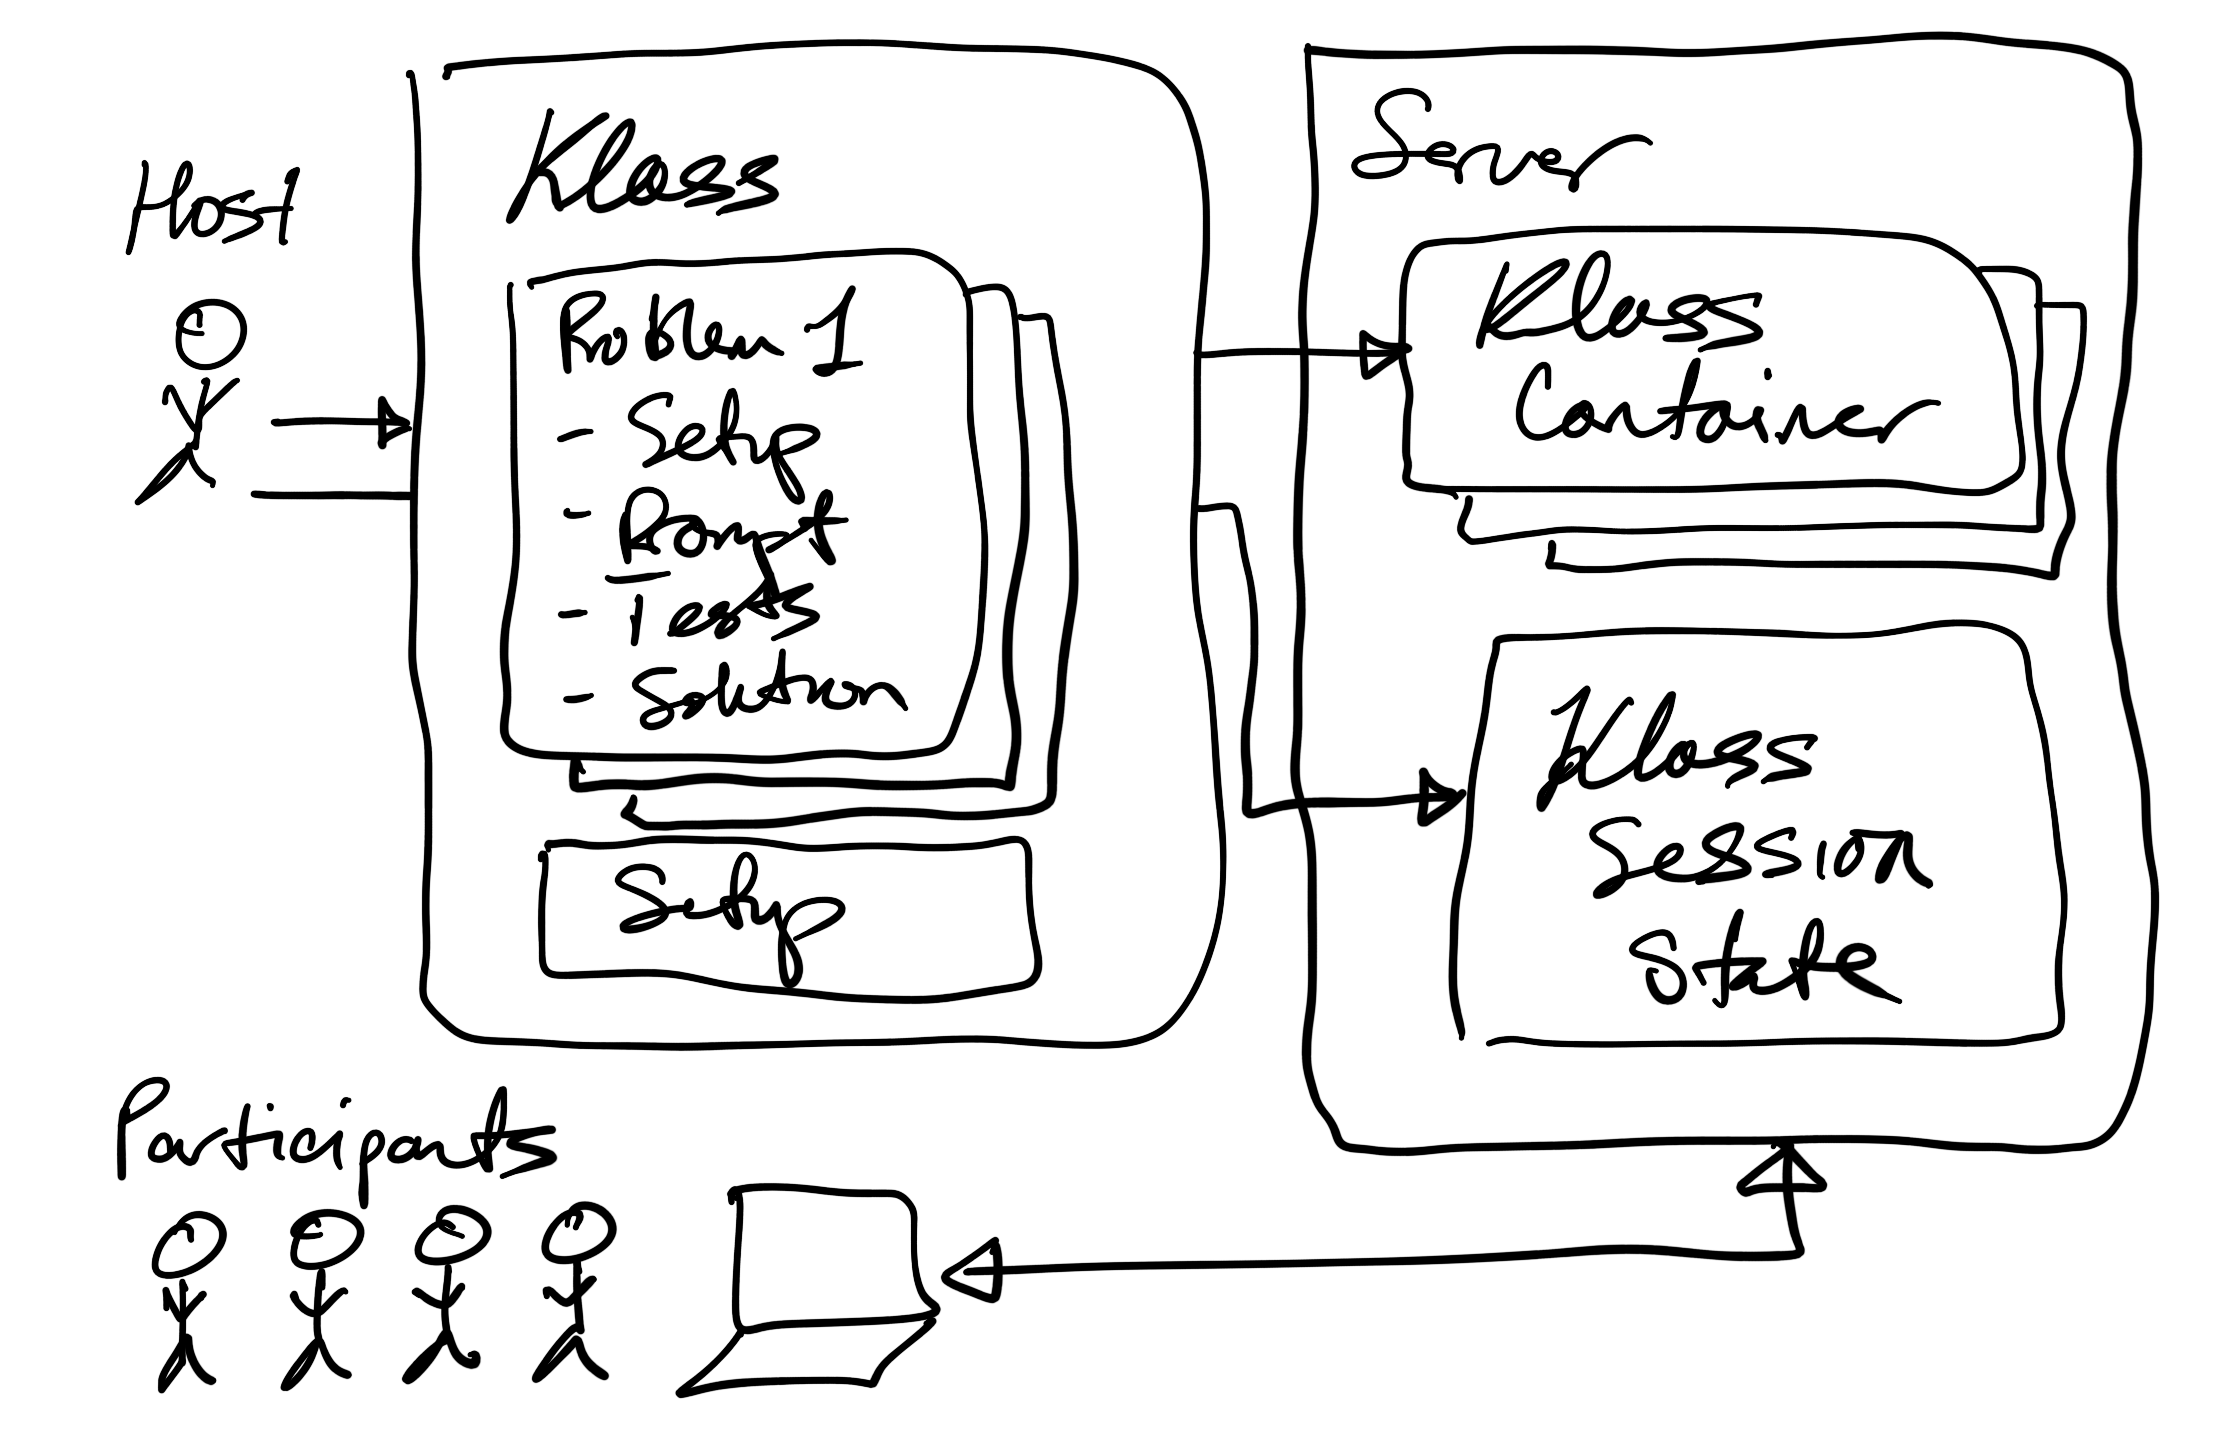 Host
Klass
Problem 1
- Setup
- Prompt
- Tests
- Solution
Setup
Server
Klass
Container
Klass
Session
State
Participants